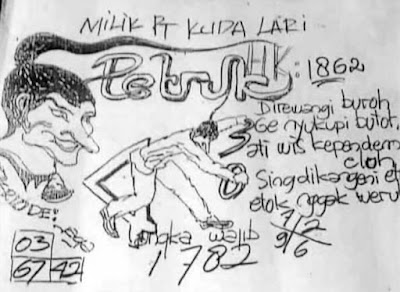 MILIK PT KUDA LARI
Petruk HK: 1862
Direwangi buroh
Ge nyukupi butoh,
ati wis kependem
cloh
Sing dikangeni et
etok nggak weru
7 2
9 6
03
67 42
Angka wajib
1782